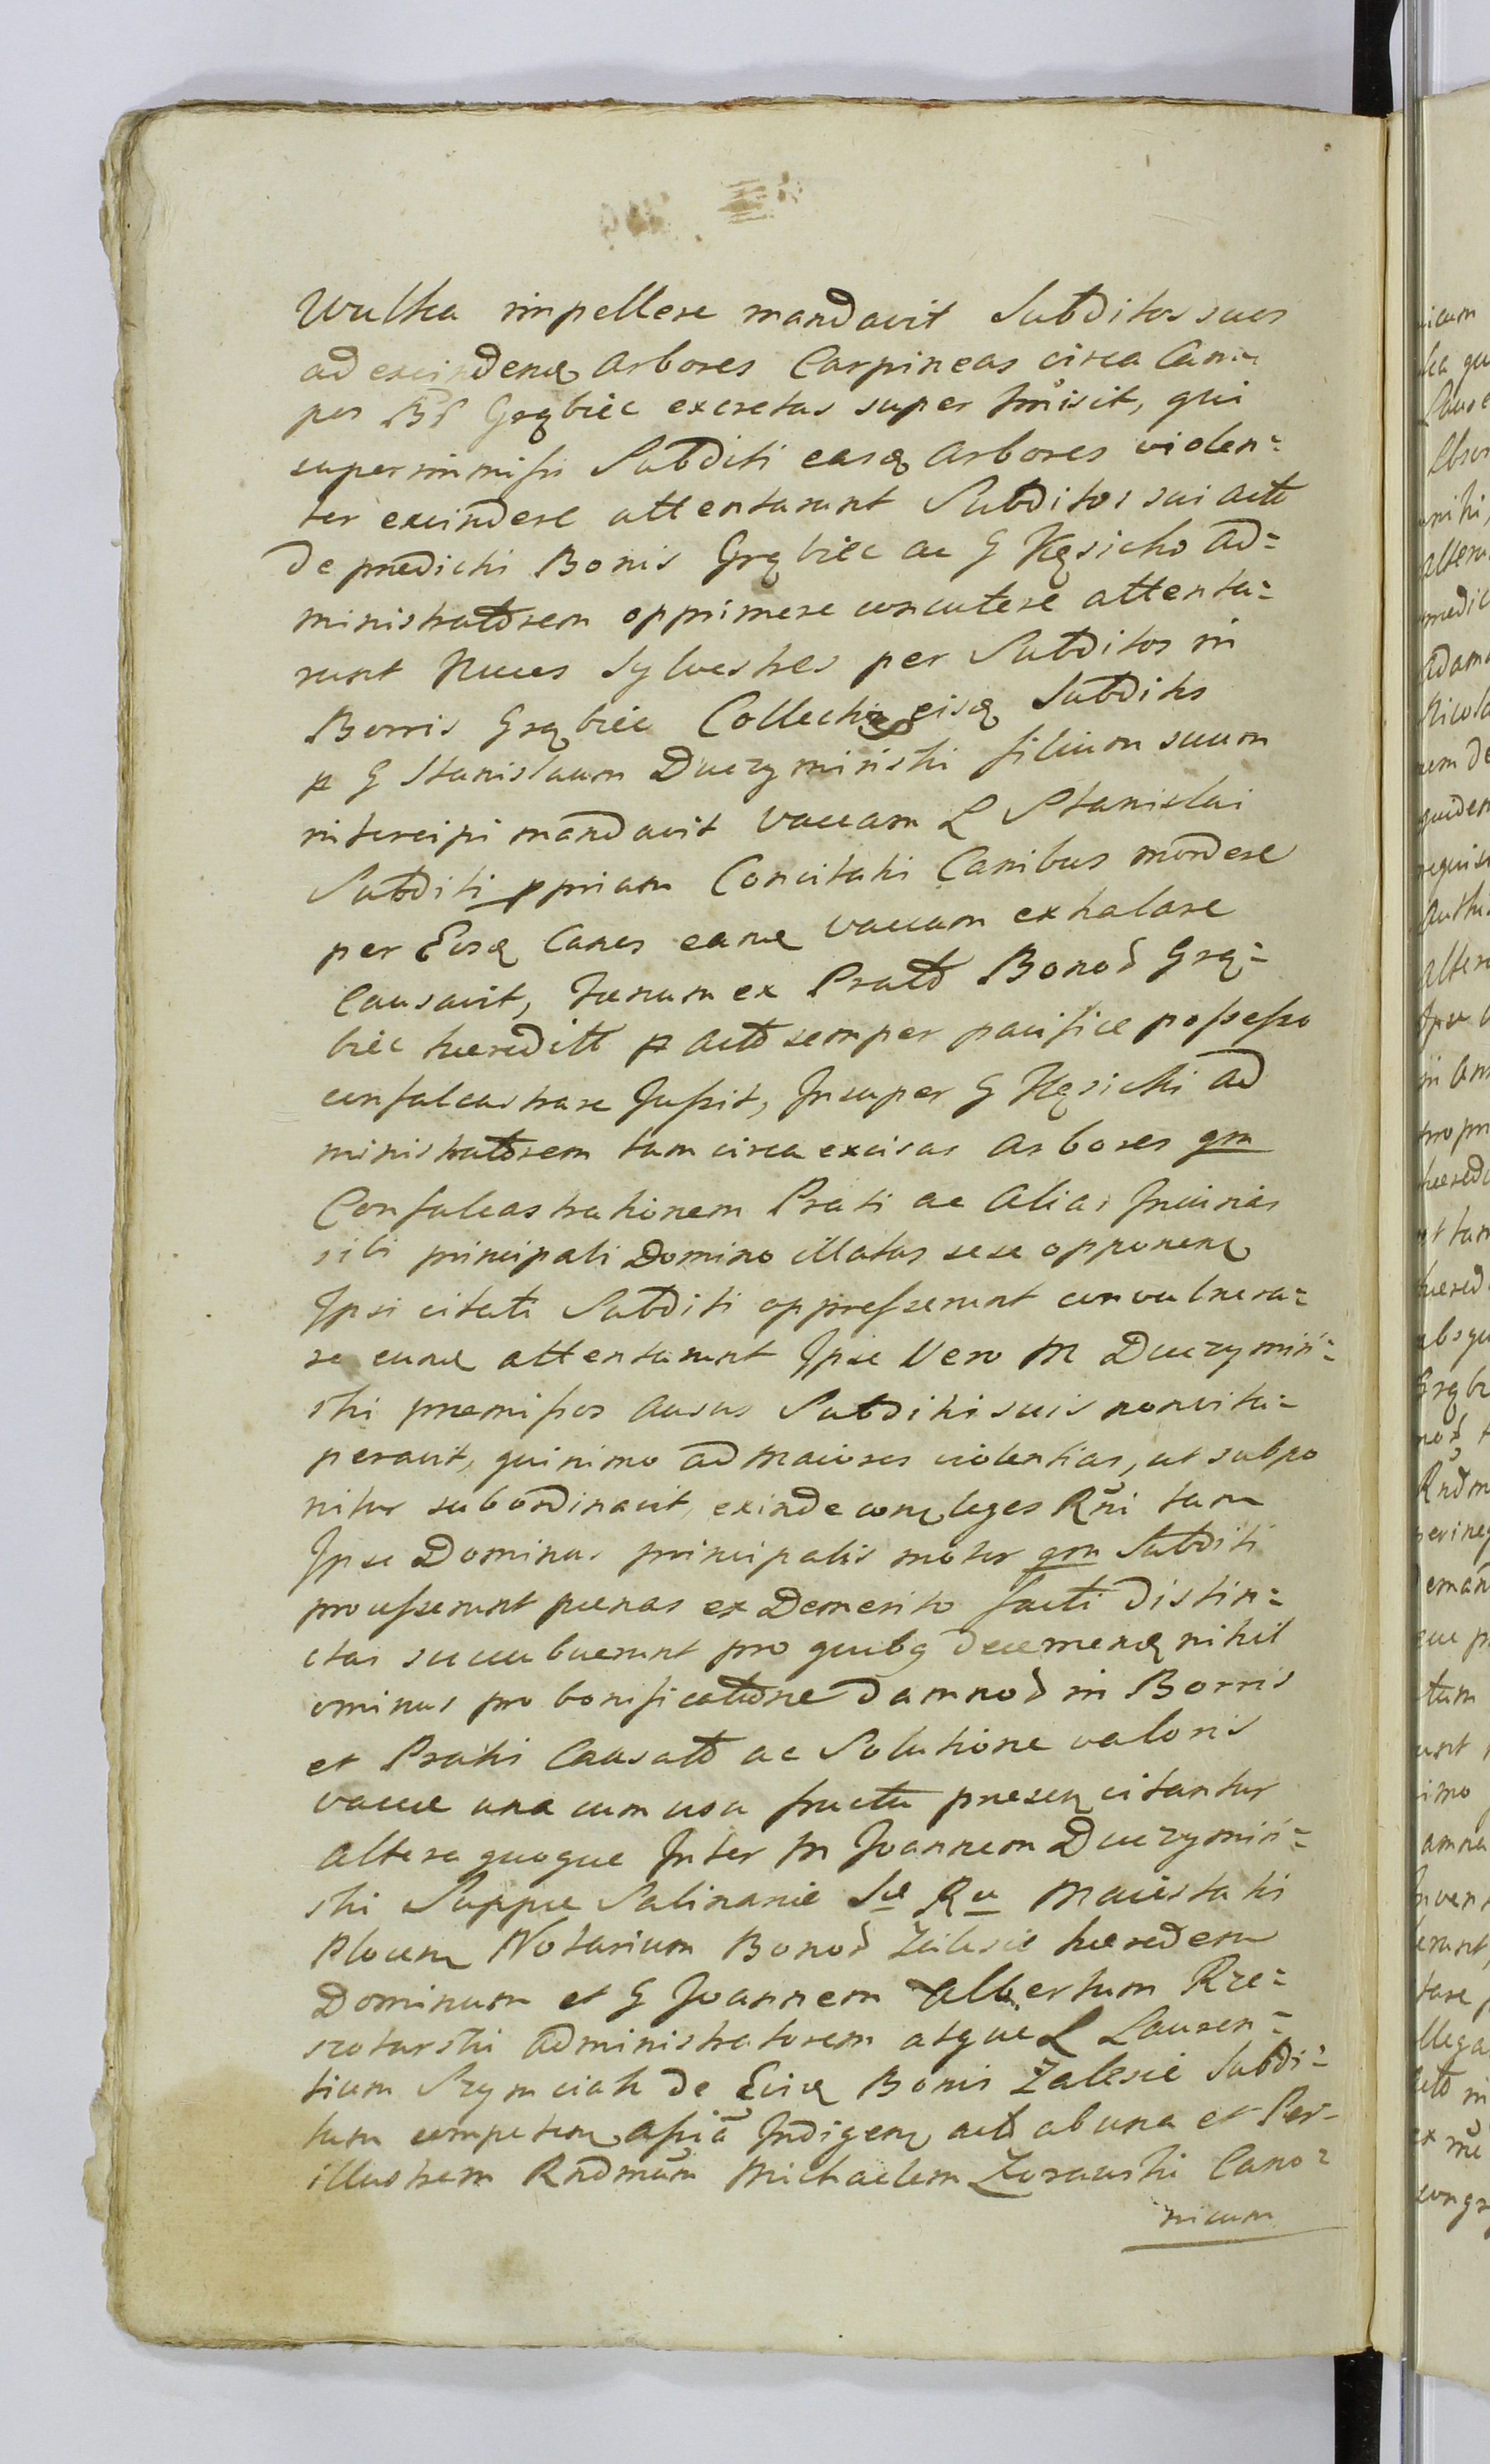 Wulka impellere mandavit Subditos suos
ad excindenq arbores Carpineas circa Cam=
pos BB Grąbiec excretas super imisit, qui
superimmissi Subditi easq arbores violen=
ter excindere attentarunt Subditos sui actt
de praedictis Bonis Grąbiec ac G Kęsicko ad=
ministratorem opprimere concutere attenta=
runt Nuces sylvestres per Subditos in
Borris Grąbiec Collectas eisq Subditis
p G Stanislaum Duczyminski filium suum
intercipi mandavit vaccam L Stanislai
Subditi ppriam Concitatis Canibus mordere
per Eosq Canes eanq vaccam exhalare
Causavit, faenum ex Prato Bonod Grą=
biec haereditt p acto semper pacifice possesso
confalcastrare Jussit, Insuper G Kęsicki ad
ministratorem tam circa excisas arbores qm
Confalcastrationem Prati ac alias Iniurias
sibi principali Domino illatas sese opponenq
Ipsi citati Subditi oppresserunt convulnera=
re eunq attentarunt Ipse Vero M Duczymin=
ski praemissos ausus Subditis suis non vitu=
peravit, quinimo ad maiores violentias, ut subpo
nitur subordinavit, exinde conq leges Rni tam
Ipse Dominus principalis motor qm Subditi
processerunt paenas ex Demerito facti distin=
ctas succubuerunt pro quibq decernenq nihil
ominus pro bonificatione damnod in Borris
et Pratis Causatt ac Solutione valoris
vaccae una cum usu fructu praesenq citantur
altera quoque Inter M Joannem Duczymin=
ski Suppae Salinariae Sae Rae Maiestatis
Plocenq Notarium Bonod Zalesie haeredem
Dominum et G Joannem Albertum Rze=
szotarski administratorem atque L Lauren=
tium Szymciak de Eisq Bonis Zalesie Subdi=
tum competenq assiã Indigenq actt ab una et Per=
illustrem Rndmum Michaelem Zorawski Cano=
nicum